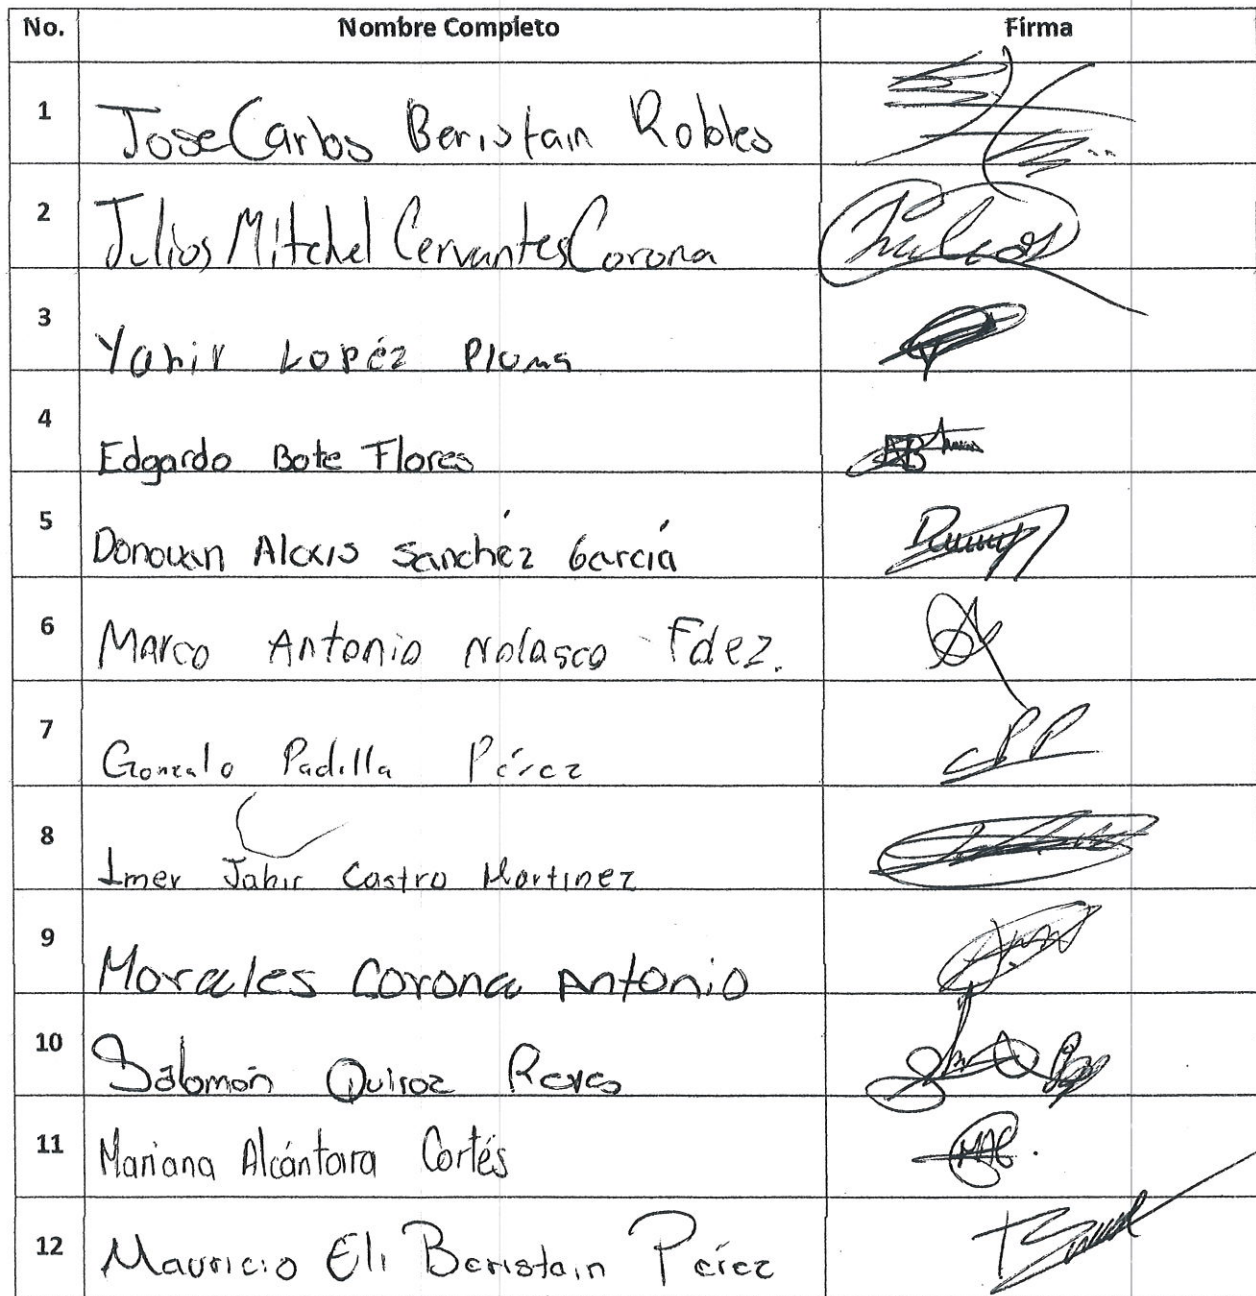 No. Nombre Completo Firma
1 Jose Carlos Beristain Robles
2 Julios Mitchel Cervantes Corona
3 Yahir Lopéz Pluma
4 Edgardo Bote Flores
5 Donovan Alexis Sanchez García
6 Marco Antonio Nolasco Fdez.
7 Gonzalo Padilla Pérez
8 Imer Jahir Castro Martinez
9 Morales Corona Antonio
10 Salomón Quiroz Reyes
11 Mariana Alcántara Cortés MAC.
12 Mauricio Eli Beristain Pérez